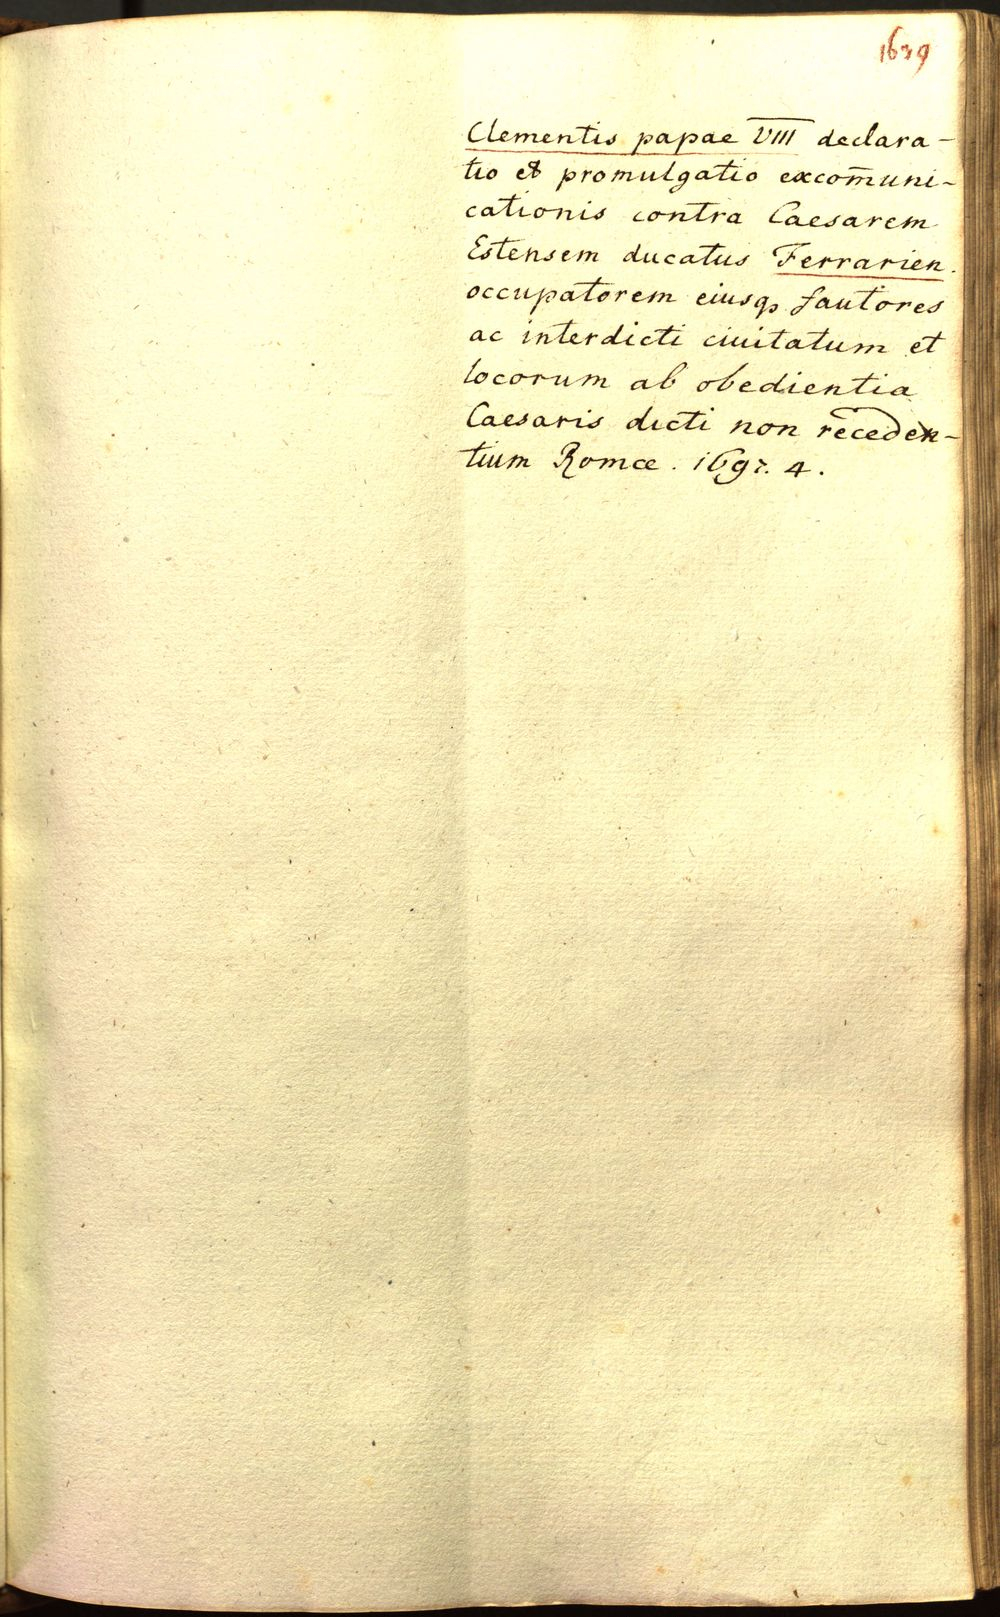 1639
Clementis papae VIII declara-
tio et promulgatio excom̄uni-
cationis contra Caesarem
Estensem ducatus Ferrarien.
occupatorem eiusq3 fautores
ac interdicti ciuitatum et
locorum ab obedientia
Caesaris dicti non receden-
tium Romae. 1697. 4.